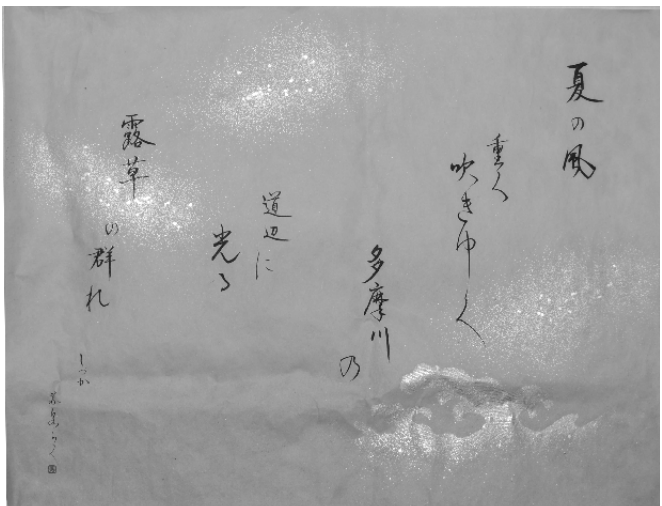 夏の風
重く
吹きゆく
多摩川
乃
道辺に
光る
露草
の群れ
しづか